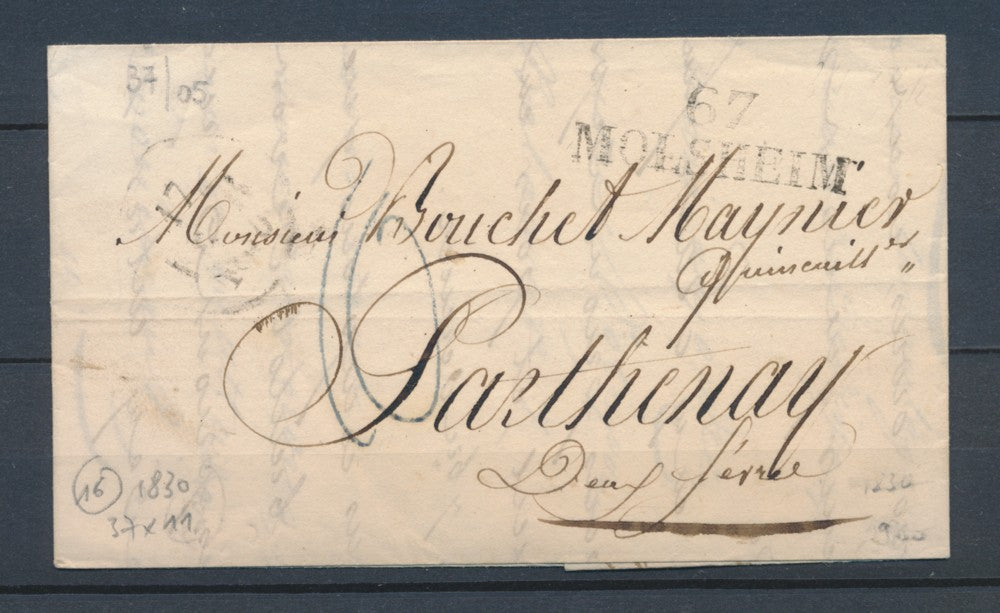 37/05
67
MOLSHEIM
Monsieur Bouchet Maynier
Quincaill.er "
Parthenay
Deux Sèvres
16 1830
37 x 11
1830